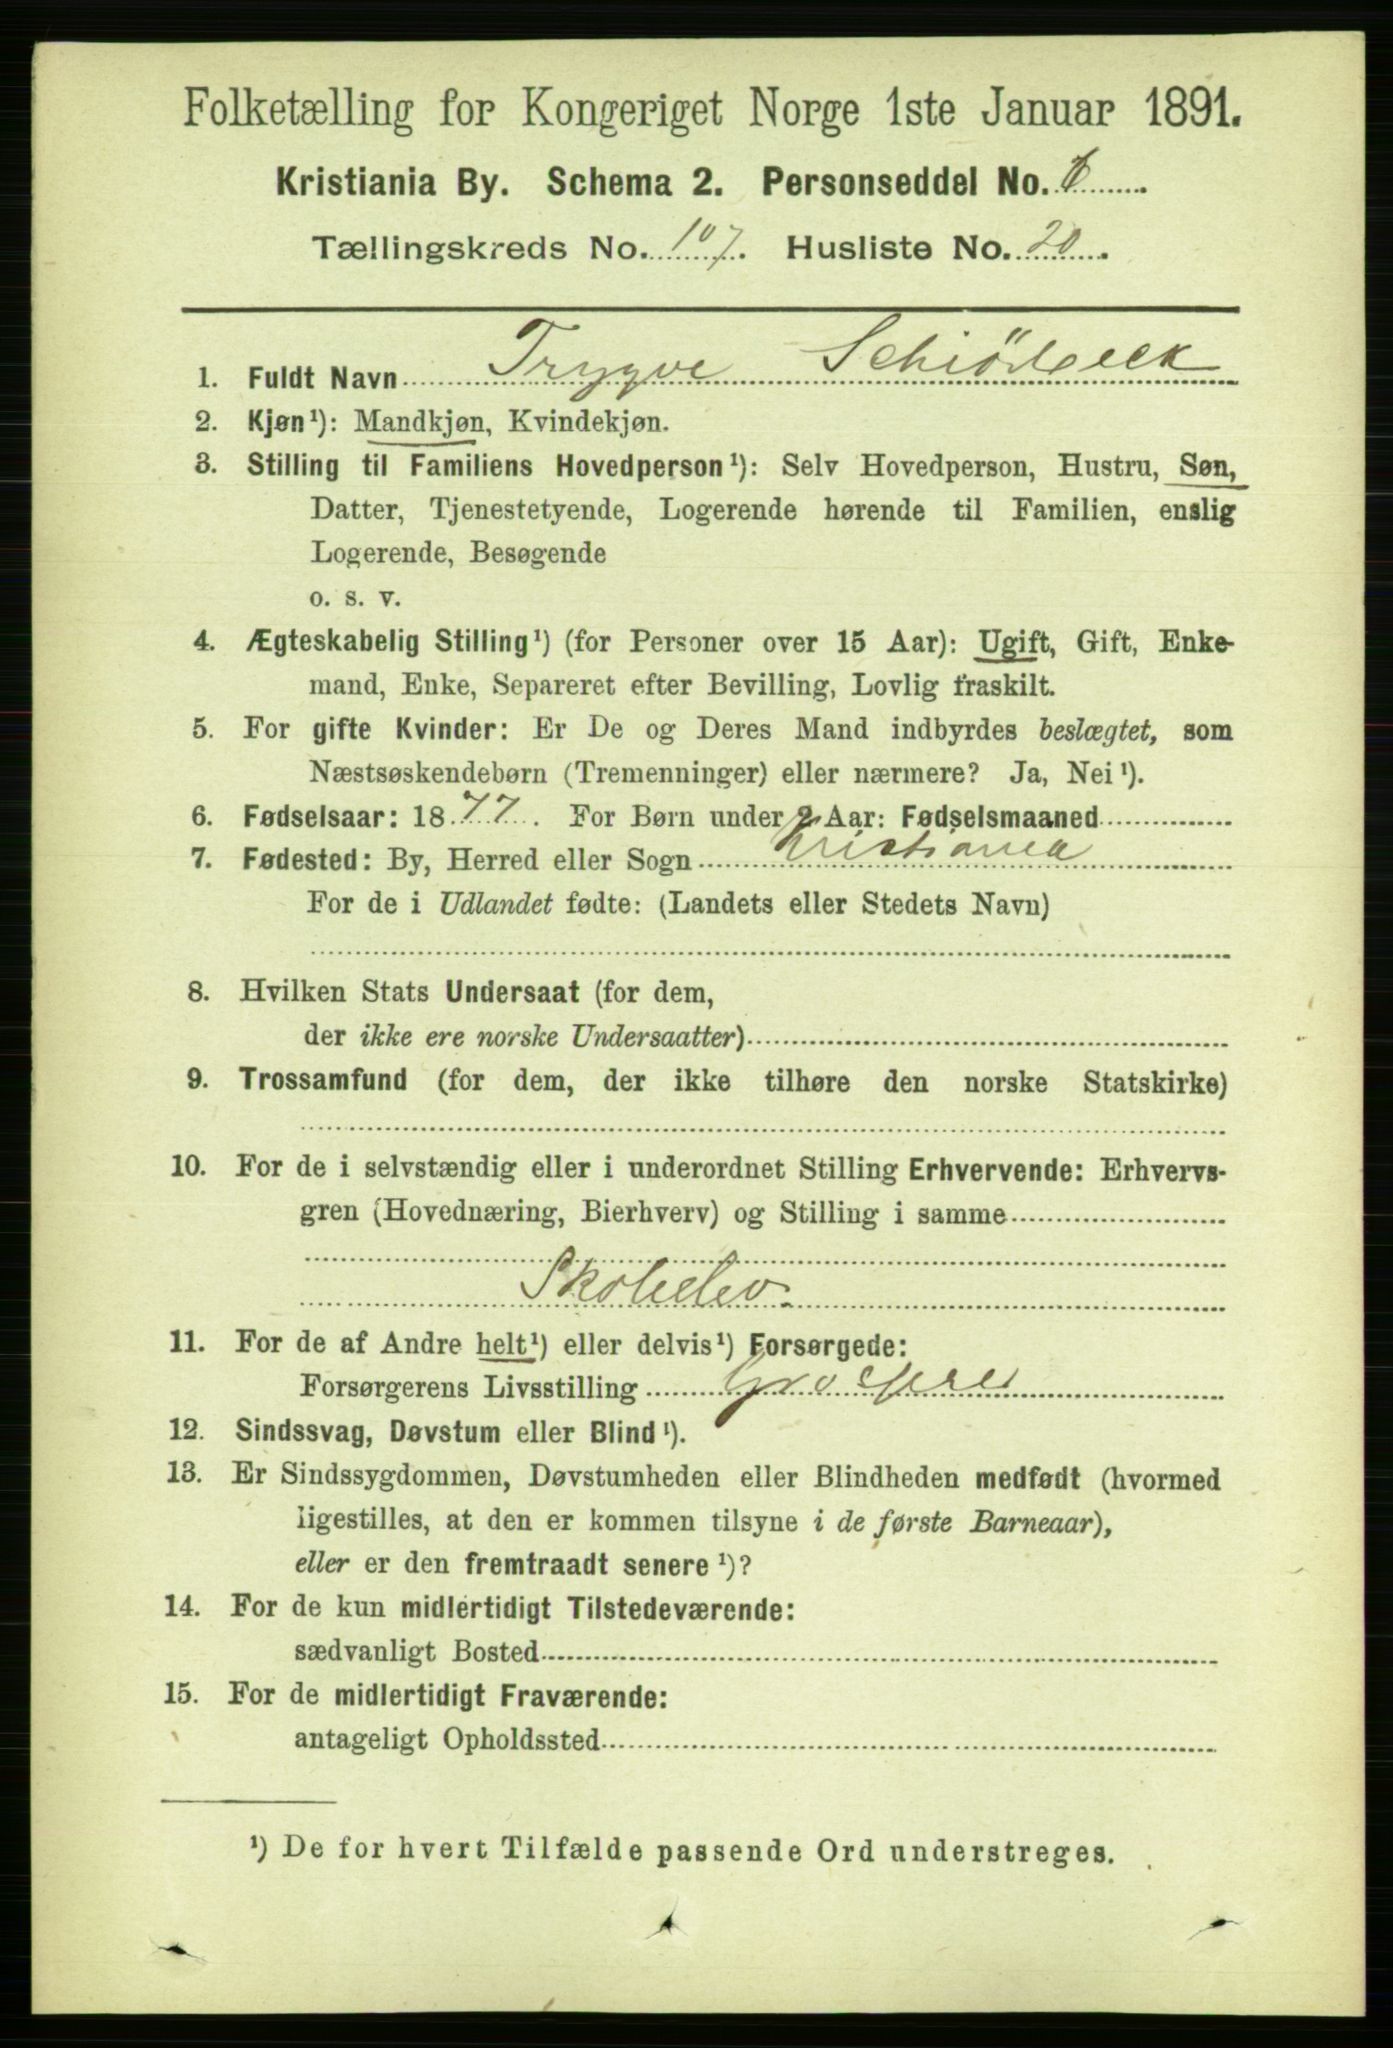 Folketælling for Kongeriget Norge 1ste Januar 1891.
Kristiania By. Schema 2. Personseddel No.
Tællingskreds No. 107. Husliste No. 20.
1. Fuldt Navn Trygve Schiödbeck
2. Kjøn¹): Mandkjøn, Kvindekjøn.
3. Stilling til Familiens Hovedperson¹): Selv Hovedperson, Hustru, Søn,
Datter, Tjenestetyende, Logerende hørende til Familien, enslig
Logerende, Besøgende
o. s. v.
4. Ægteskabelig Stilling¹) (for Personer over 15 Aar): Ugift, Gift, Enke-
mand, Enke, Separeret efter Bevilling, Lovlig fraskilt.
5. For gifte Kvinder: Er De og Deres Mand indbyrdes beslægtet, som
Næstsøskendebørn (Tremenninger) eller nærmere? Ja, Nei¹).
6. Fødselsaar: 1877. For Børn under 2 Aar: Fødselsmaaned
7. Fødested: By, Herred eller Sogn Kristiania
For de i Udlandet fødte: (Landets eller Stedets Navn)
8. Hvilken Stats Undersaat (for dem,
der ikke ere norske Undersaatter)
9. Trossamfund (for dem, der ikke tilhøre den norske Statskirke)
10. For de i selvstændig eller i underordnet Stilling Erhvervende: Erhvervs-
gren (Hovednæring, Bierhverv) og Stilling i samme
Skoleelev.
11. For de af Andre helt¹) eller delvis¹) Forsørgede:
Forsørgerens Livsstilling Grosserer
12. Sindssvag, Døvstum eller Blind¹).
13. Er Sindssygdommen, Døvstumheden eller Blindheden medfødt (hvormed
ligestilles, at den er kommen tilsyne i de første Barneaar),
eller er den fremtraadt senere¹)?
14. For de kun midlertidigt Tilstedeværende:
sædvanligt Bosted
15. For de midlertidigt Fraværende:
antageligt Opholdssted
¹) De for hvert Tilfælde passende Ord understreges.